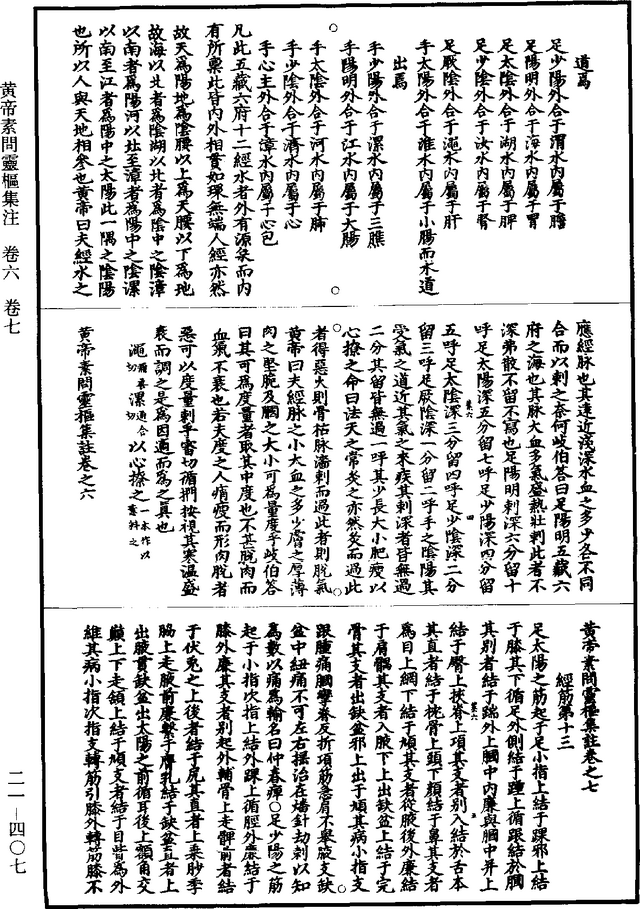 黃帝素問靈樞集注　卷六　卷七
道焉
足少陽外合于渭水內屬于膽
足陽明外合于海水內屬于胃
足太陰外合于湖水內屬于脾
足少陰外合于汝水內屬于腎
足厥陰外合于澠水內屬于肝
手太陽外合于淮水內屬于小腸而水道
出焉
手少陽外合于漯水內屬于三膲
手陽明外合于江水內屬于大腸
手太陰外合于河水內屬于肺
手少陰外合于濟水內屬于心
手心主外合于漳水內屬于心包
凡此五藏六府十二經水者外有源泉而內
有所稟此皆內外相貫如環無端人經亦然
故天爲陽地爲陰腰以上爲天腰以下爲地
故海以北者爲陰湖以北者爲陰中之陰漳
以南者爲陽河以北至漳者爲陽中之陰漯
以南至江者爲陽中之太陽此一隅之陰陽
也所以人與天地相參也黃帝曰夫經水之
應經脉也其遠近淺深水血之多少各不同
合而以刺之奈何歧伯荅曰足陽明五藏六
府之海也其脉大血多氣盛熱壯刺此者不
深弗散不留不寫也足陽明刺深六分留十
呼足太陽深五分留七呼足少陽深四分留
五呼足太陰深三分留四呼足少陰深二分
留三呼足厥陰深一分留二呼手之陰陽其
受氣之道近其氣之來疾其刺深者皆無過
二分其留皆無過一呼其少長大小肥瘦以
心撩之命曰法天之常灸之亦然灸而過此
者得惡火則骨枯脉濇刺而過此者則脫氣
黃帝曰夫經脉之小大血之多少膚之厚薄
肉之堅脆及膕之大小可爲量度乎歧伯荅
曰其可爲度量者取其中度也不甚脫肉而
血氣不衰也若夫度之人痟瘦而形肉脫者
惡可以度量刺乎審切循捫按視其寒溫盛
衰而調之是爲因適而爲之真也
以心撩之
黃帝素問靈樞集註卷之六
黃帝素問靈樞集註卷之七
經筋第十三
足太陽之筋起于足小指上結于踝邪上結
于膝其下循足外側結于踵上循跟結於膕
其別者結于踹外上膕中內廉與膕中并上
結于臀上挾脊上項其支者別入結於舌本
其直者結于枕骨上頭下顏結于鼻其支者
爲目上網下結于頄其支者從腋後外廉結
于肩髃其支者入腋下上出缺盆上結于完
骨其支者出缺盆邪上出于頄其病小指支
跟腫痛膕攣脊反折項筋急肩不舉腋支缺
盆中紐痛不可左右搖治在燔針劫刺以知
爲數以痛爲輸名曰仲春痹○足少陽之筋
起于小指次指上結外踝上循脛外廉結于
膝外廉其支者別起外輔骨上走髀前者結
于伏兔之上後者結于尻其直者上乘䏚季
脇上走腋前廉繫于膺乳結于缺盆直者上
出腋貫缺盆出太陽之前循耳後上額角交
巔上下走頷上結于頄支者結于目眥爲外
維其病小指次指支轉筋引膝外轉筋膝不
二一—四〇七